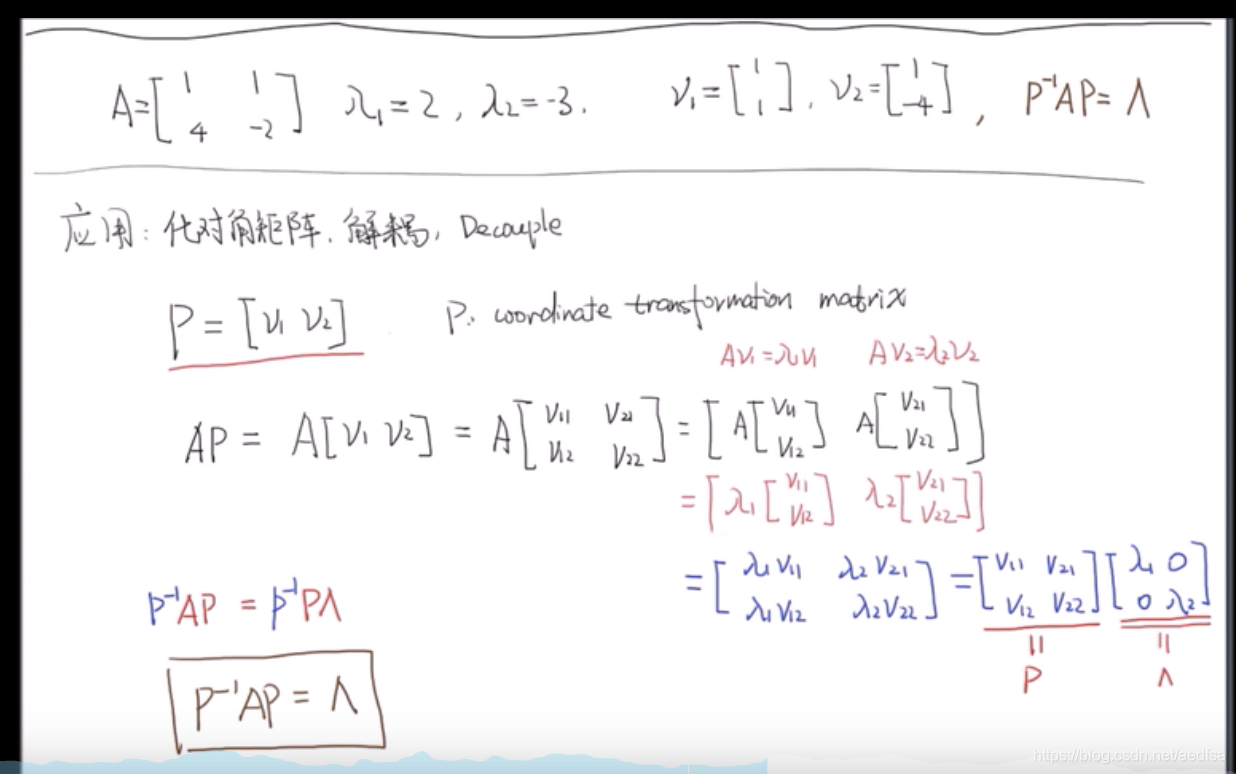 A=[1 1; 4 -2] λ₁=2, λ₂=-3. v₁=[1; 1], v₂=[1; -4], P⁻¹AP=Λ
应用: 化对角矩阵. 解耦, Decouple
P=[v₁ v₂] P: coordinate transformation matrix
Av₁=λ₁v₁ Av₂=λ₂v₂
AP = A[v₁ v₂] = A[v₁₁ v₂₁; v₁₂ v₂₂] = [A[v₁₁; v₁₂] A[v₂₁; v₂₂]]
=[λ₁[v₁₁; v₁₂] λ₂[v₂₁; v₂₂]]
=[λ₁v₁₁ λ₂v₂₁; λ₁v₁₂ λ₂v₂₂] =[v₁₁ v₂₁; v₁₂ v₂₂][λ₁ 0; 0 λ₂]
= =
P Λ
P⁻¹AP = P⁻¹PΛ
P⁻¹AP = Λ